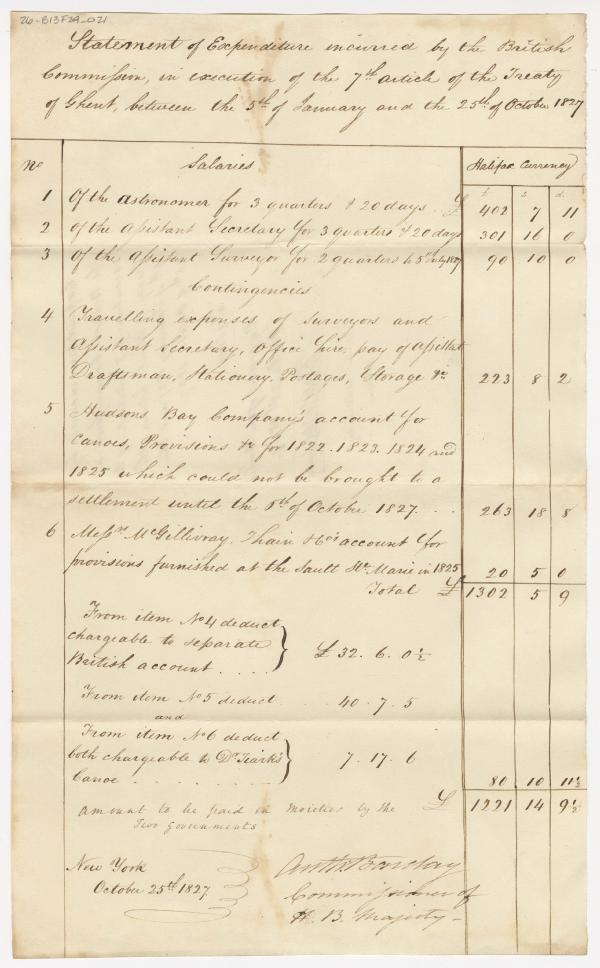 26-B13F29-021
Statement of Expenditure incurred by the British
Commission, in execution of the 7th article of the Treaty
of Ghent, between the 5th of January and the 25th of October 1827
No Salaries Halifax Currency
£ s d
1 Of the astronomer for 3 quarters & 20 days .. £ 402 7 11
2 Of the Assistant Secretary for 3 quarters & 20 days 301 16 0
3 Of the Assistant Surveyor for 2 quarters to 5th July 1827 90 10 0
Contingencies
4 Travelling expenses of Surveyors and
Assistant Secretary, Office hire, pay of Assistant
Draftsman, Stationery, Postages, Storage &c 223 8 2
5 Hudsons Bay Company's account for
Canoes, Provisions &c for 1822. 1823. 1824 and
1825 which could not be brought to a
settlement until the 6th of October 1827. . . 263 18 8
6 Messrs McGillivray, Thain & Cos account for
provisions furnished at the Sault Ste Marie in 1825 20 5 0
Total £ 1302 5 9
From item No 4 deduct
chargeable to separate
British account . . . . } £ 32. 6. 0½
From item No 5 deduct . . 40. 7. 5
and
From item No 6 deduct
both chargeable to Dr Tiarks's
Canoe . . . . . . . . . } 7. 17. 6
80 10 11½
amount to be paid in Moieties by the £ 1221 14 9½
Two governments
New York
October 25th 1827
Anth Barclay
Commissioner of
H. B. Majesty